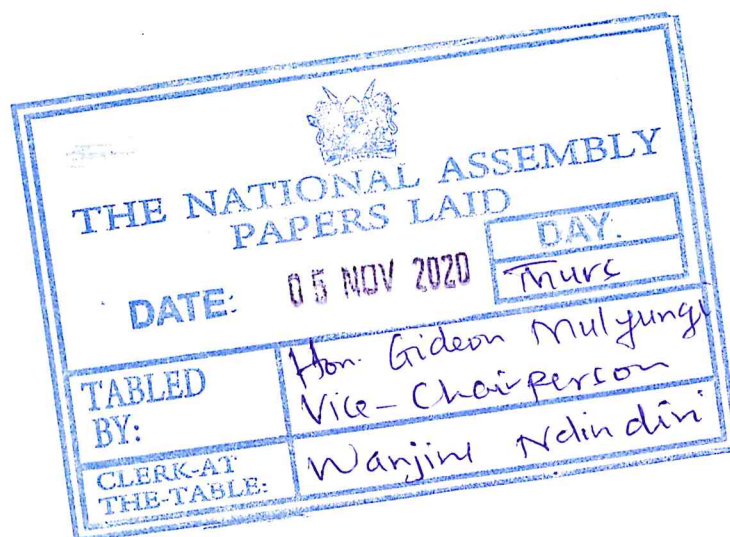 THE NATIONAL ASSEMBLY
PAPERS LAID
DATE: 05 NOV 2020
DAY:
Thurs
TABLED BY:
Hon. Gideon Mulyungi
Vice-Chairperson
CLERK-AT THE-TABLE:
Wanjiru Ndindiri